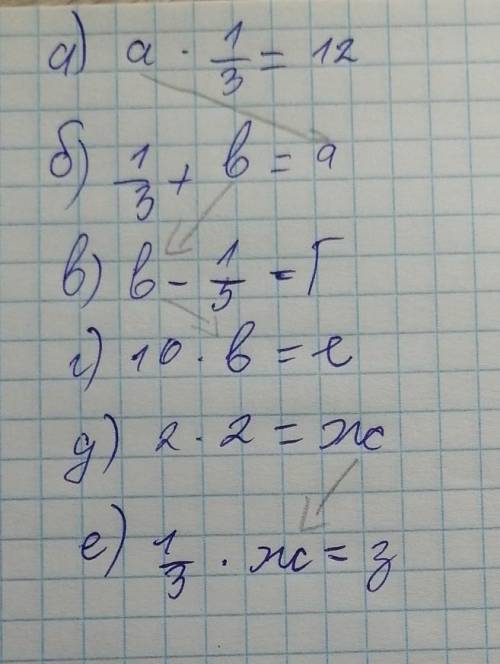 а) а · 1/3 = 12
б) 1/3 + в = а
в) в - 1/5 = Г
г) 10 · в = е
д) 2 · 2 = ж
е) 1/3 · ж = з